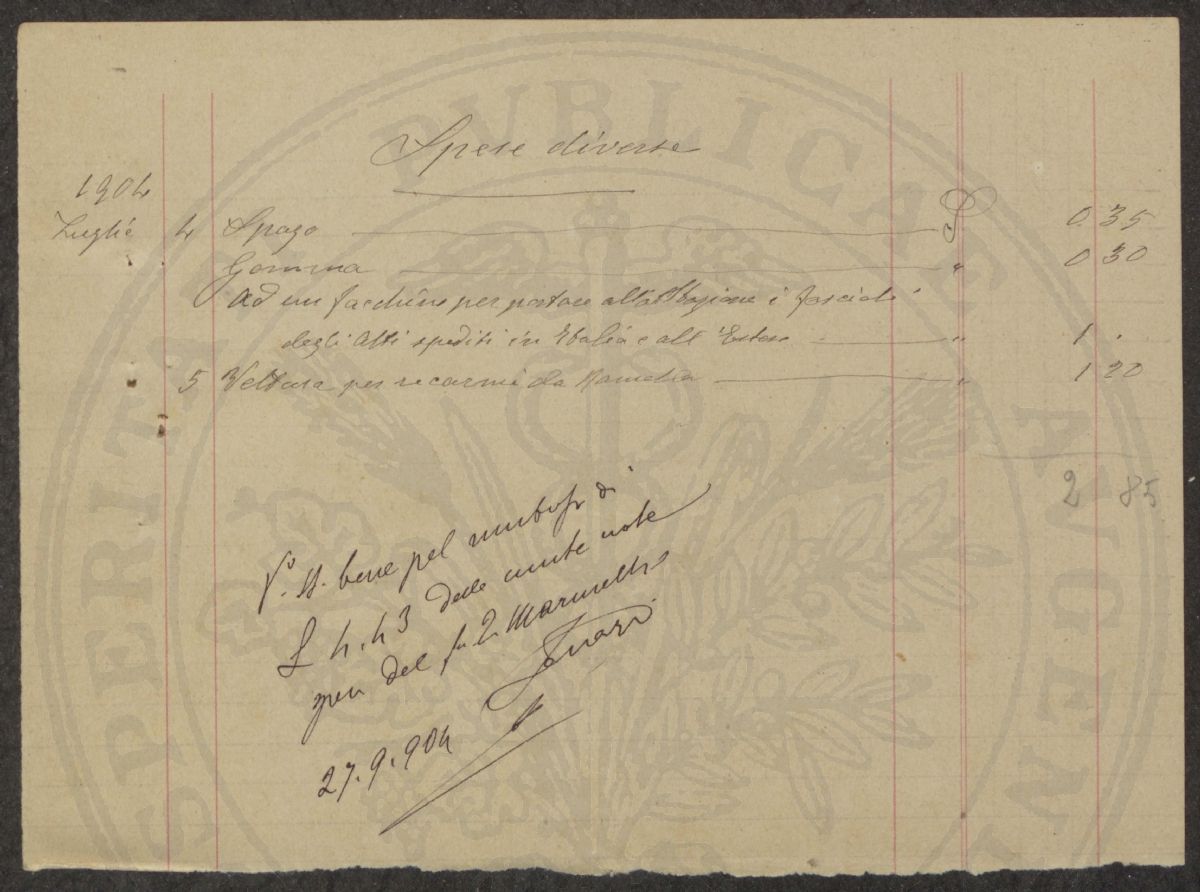 Spese diverse
1904
Luglio 4 Spago £ 0.35
Gomma " 0 30
Ad un facchino per portare alla Stazione i fascicoli
degli Atti spediti in Italia e all'Estero " 1 .
5 Vettura per recarmi da " 1 20
2 85
V. Si bene pel rimborso di
£ 4.43 delle unite note
spese del fu
27.9.904
PERITAE PVBLICAE AVGEN